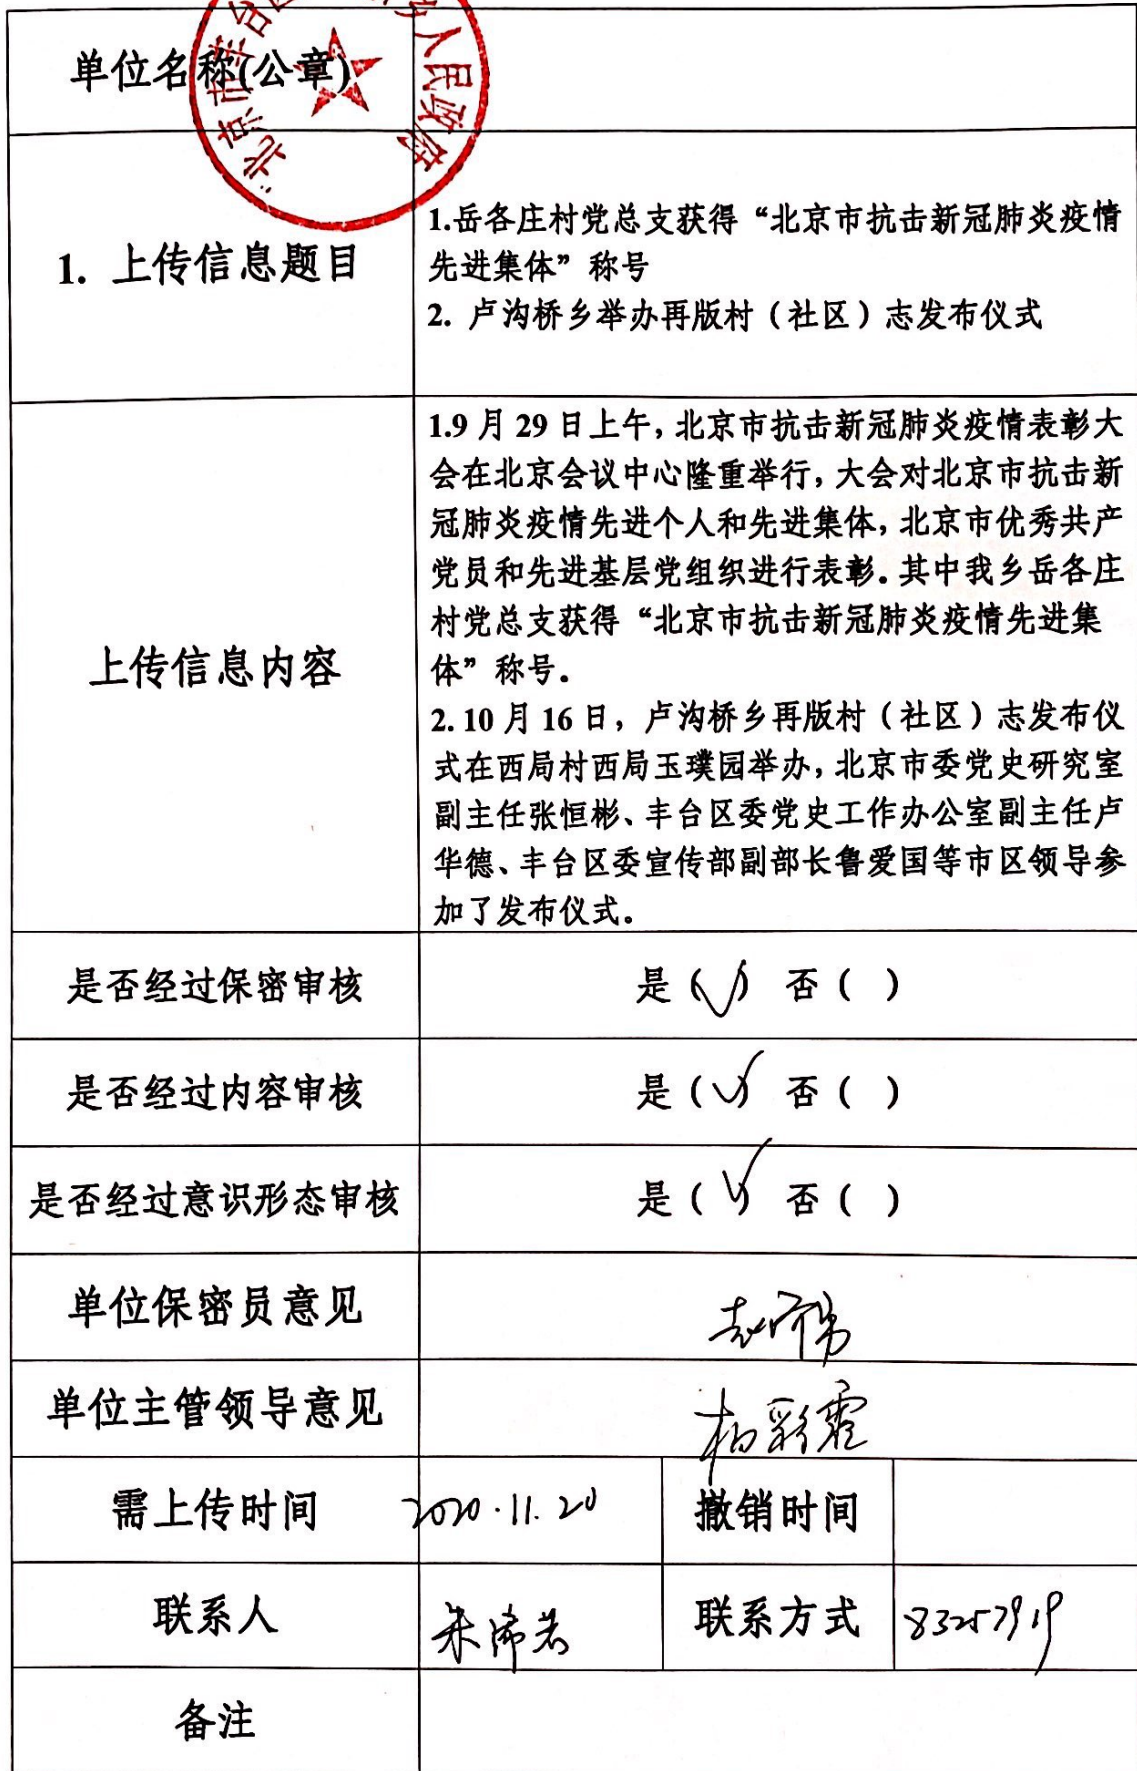 北京市丰台区 乡人民政府
单位名称(公章)
1. 上传信息题目
1.岳各庄村党总支获得“北京市抗击新冠肺炎疫情
先进集体”称号
2. 卢沟桥乡举办再版村（社区）志发布仪式
上传信息内容
1.9月29日上午,北京市抗击新冠肺炎疫情表彰大
会在北京会议中心隆重举行,大会对北京市抗击新
冠肺炎疫情先进个人和先进集体,北京市优秀共产
党员和先进基层党组织进行表彰。其中我乡岳各庄
村党总支获得“北京市抗击新冠肺炎疫情先进集
体”称号。
2. 10月16日，卢沟桥乡再版村（社区）志发布仪
式在西局村西局玉璞园举办,北京市委党史研究室
副主任张恒彬、丰台区委党史工作办公室副主任卢
华德、丰台区委宣传部副部长鲁爱国等市区领导参
加了发布仪式。
是否经过保密审核 是(✓) 否( )
是否经过内容审核 是(✓) 否( )
是否经过意识形态审核 是(✓) 否( )
单位保密员意见
单位主管领导意见 柏彩霞
需上传时间 2020.11.20 撤销时间
联系人 朱 联系方式 83257919
备注